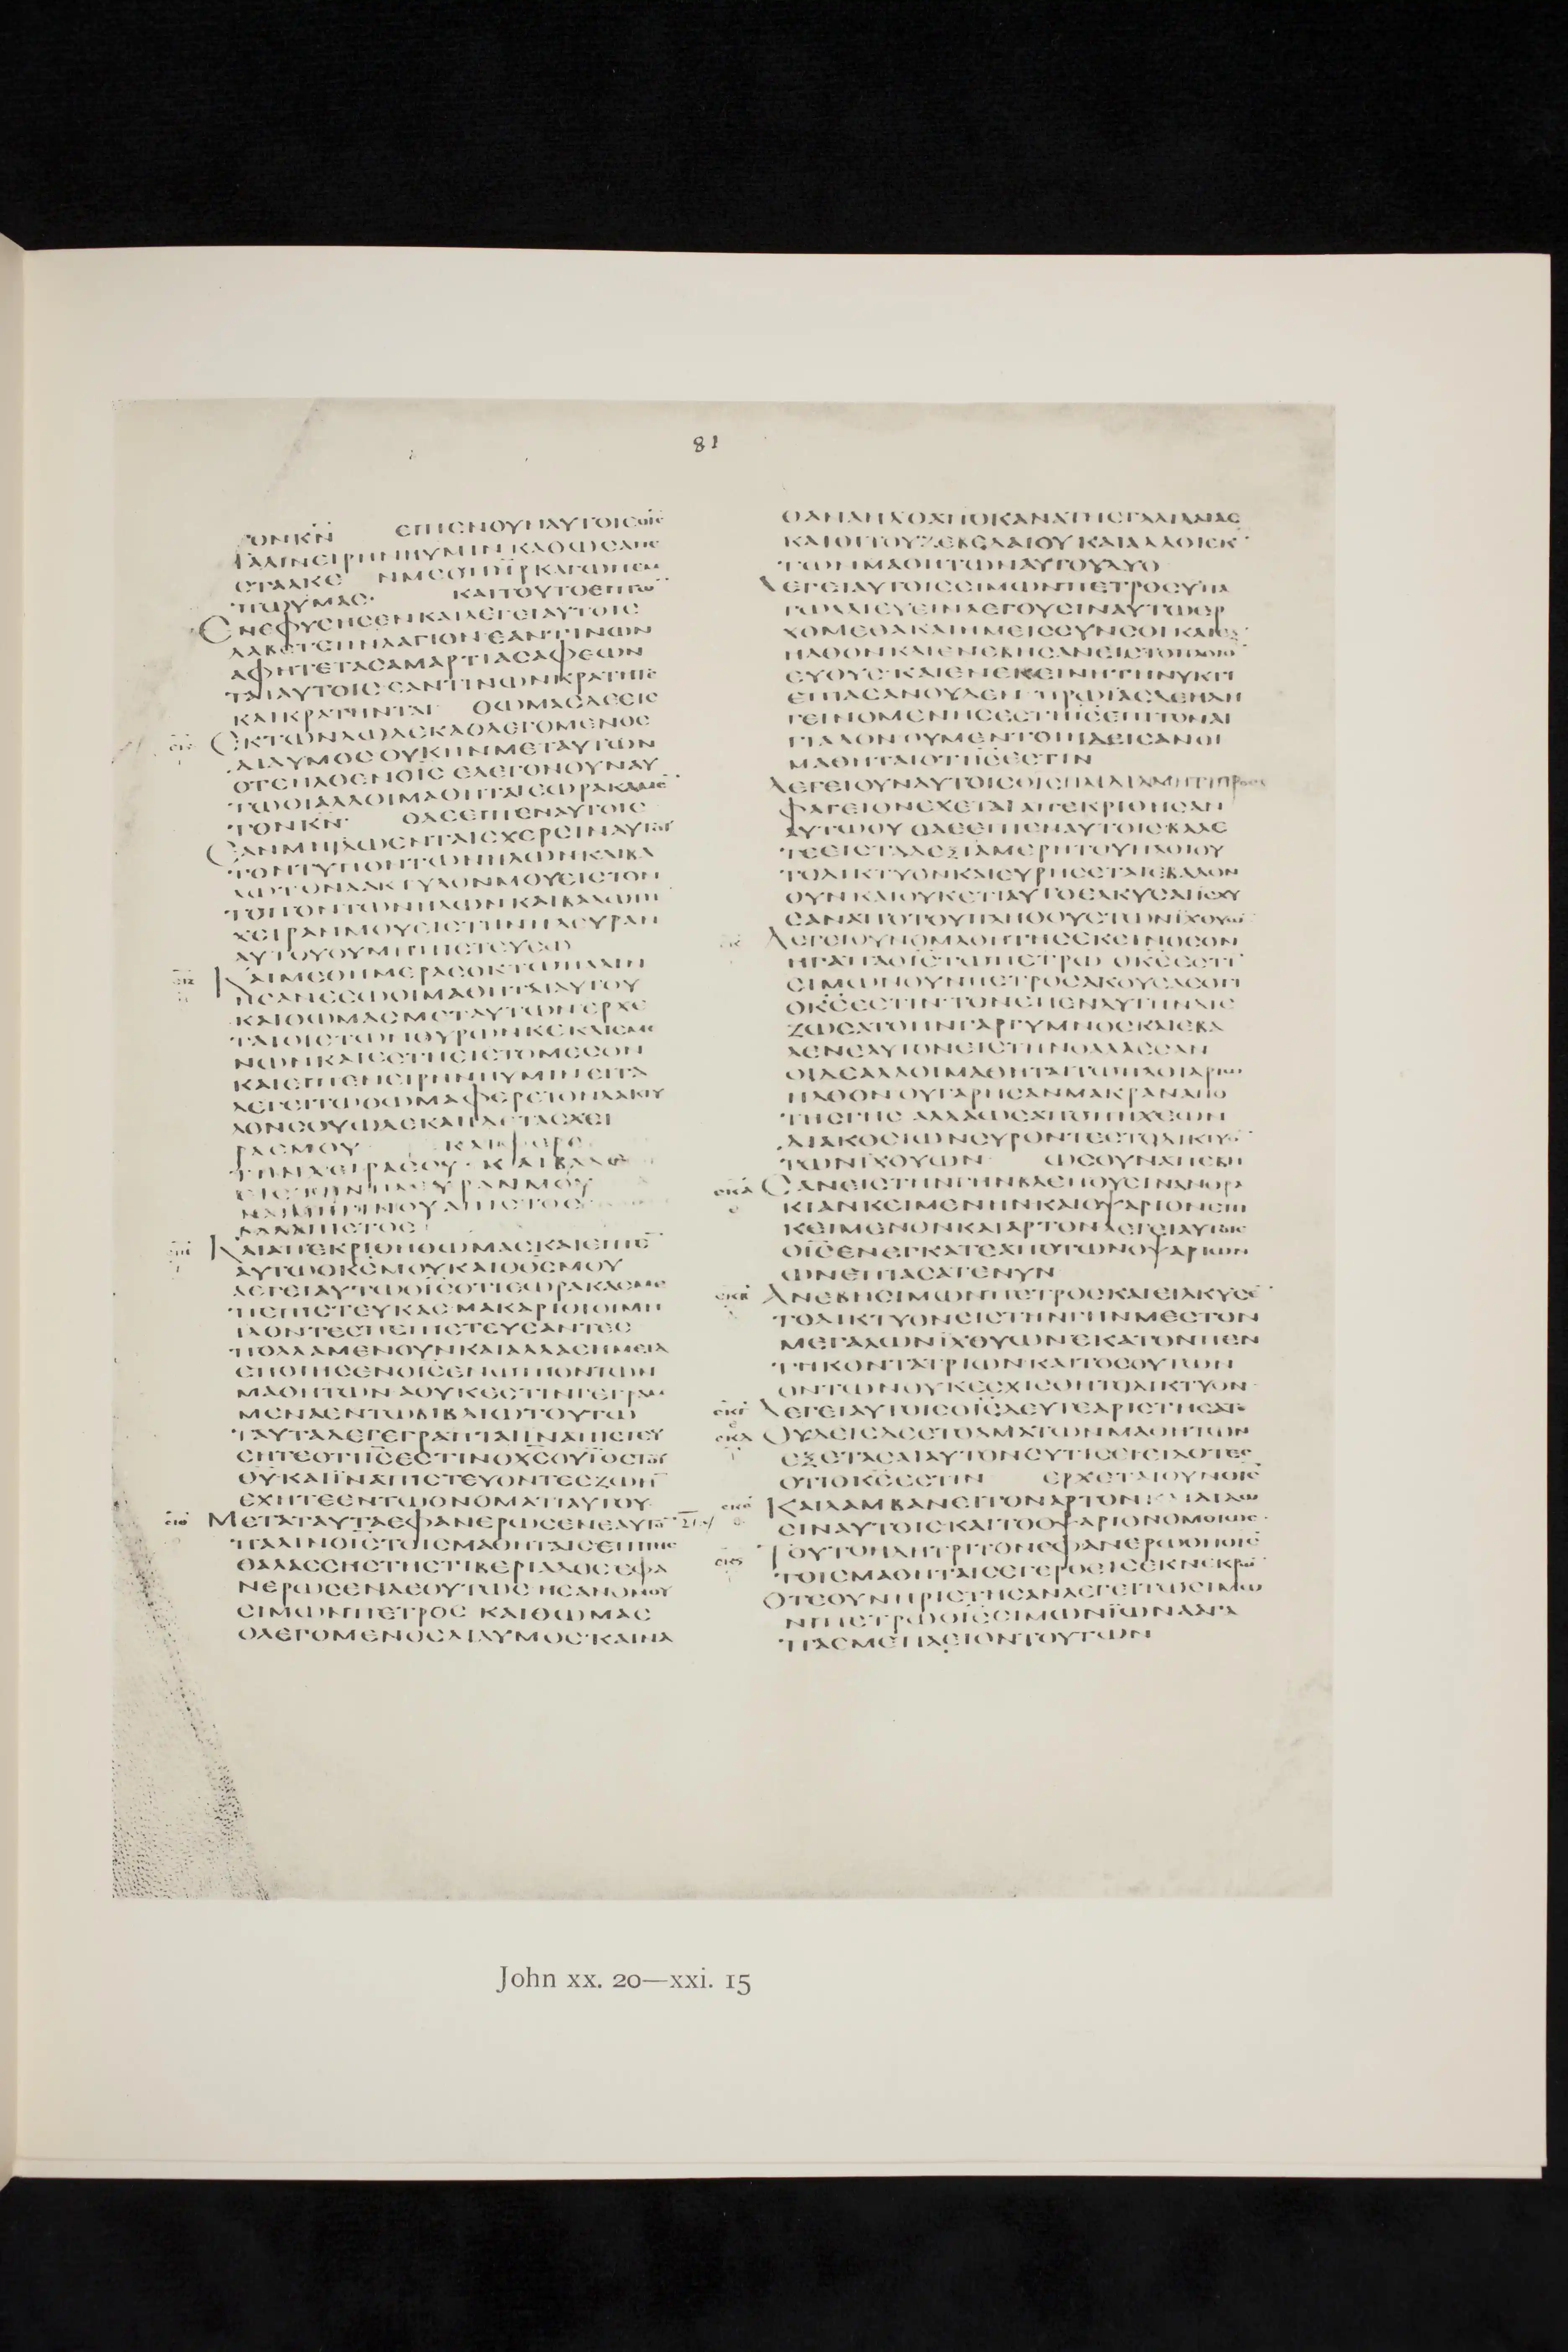 81
ΤΟΝΚΝ ΕΙΠΕΝΟΥΝΑΥΤΟΙϹΟΙϹ
ΠΑΛΙΝΕΙΡΗΝΗΥΜΙΝΚΑΘΩϹΑΠΕ
ϹΤΑΛΚΕ ΝΜΕΟΠΗΡΚΑΓΩΠΕΜ
ΠΩΥΜΑϹ· ΚΑΙΤΟΥΤΟΕΙΠΩ
ΕΝΕΦΥϹΗϹΕΝΚΑΙΛΕΓΕΙΑΥΤΟΙϹ
ΛΑΒΕΤΕΠΝΑΑΓΙΟΝΕΑΝΤΙΝΩΝ
ΑΦΗΤΕΤΑϹΑΜΑΡΤΙΑϹΑΦΕΩΝ
ΤΑΙΑΥΤΟΙϹΕΑΝΤΙΝΩΝΚΡΑΤΗΤΕ
ΚΑΙΚΡΑΤΗΝΤΑΙ ΘΩΜΑϹΔΕΕΙϹ
ΕΚΤΩΝΔΩΔΕΚΑΟΛΕΓΟΜΕΝΟϹ
ΔΙΔΥΜΟϹΟΥΚΗΝΜΕΤΑΥΤΩΝ
ΟΤΕΗΛΘΕΝΟΙϹΕΛΕΓΟΝΟΥΝΑΥ
ΤΩΟΙΑΛΛΟΙΜΑΘΗΤΑΙΕΩΡΑΚΑΜΕ
ΤΟΝΚΝ· ΟΔΕΕΙΠΕΝΑΥΤΟΙϹ
ΕΑΝΜΗΙΔΩΕΝΤΑΙϹΧΕΡϹΙΝΑΥΤΟΥ
ΤΟΝΤΥΠΟΝΤΩΝΗΛΩΝΚΑΙΒΑ
ΛΩΤΟΝΔΑΚΤΥΛΟΝΜΟΥΕΙϹΤΟΝ
ΤΟΠΟΝΤΩΝΗΛΩΝΚΑΙΒΑΛΩΤΗ
ΧΕΙΡΑΝΜΟΥΕΙϹΤΗΝΠΛΕΥΡΑΝ
ΑΥΤΟΥΟΥΜΗΠΙϹΤΕΥϹΩ
ΚΑΙΜΕΘΗΜΕΡΑϹΟΚΤΩΠΑΛΙΝ
ΗϹΑΝΕϹΩΟΙΜΑΘΗΤΑΙΑΥΤΟΥ
ΚΑΙΘΩΜΑϹΜΕΤΑΥΤΩΝΕΡΧΕ
ΤΑΙΟΙϹΤΩΝΘΥΡΩΝΚΕΚΛΕΙϹΜΕ
ΝΩΝΚΑΙΕϹΤΗΕΙϹΤΟΜΕϹΟΝ
ΚΑΙΕΙΠΕΝΕΙΡΗΝΗΥΜΙΝΕΙΤΑ
ΛΕΓΕΙΤΩΘΩΜΑΦΕΡΕΤΟΝΔΑΚΤΥ
ΛΟΝϹΟΥΩΔΕΚΑΙΙΔΕΤΑϹΧΕΙ
ΡΑϹΜΟΥ ΚΑΙΦΕΡΕ
ΤΗΝΧΕΙΡΑϹΟΥ·ΚΑΙΒΑΛΕ
ΕΙϹΤΗΝΠΛΕΥΡΑΝΜΟΥ
ΚΑΙΜΗΓΙΝΟΥΑΠΙϹΤΟϹ
ΑΛΛΑΠΙϹΤΟϹ
ΚΑΙΑΠΕΚΡΙΘΗΘΩΜΑϹΚΑΙΕΙΠΕ
ΑΥΤΩΟΚϹΜΟΥΚΑΙΟΘϹΜΟΥ
ΛΕΓΕΙΑΥΤΩΟΙϹΟΤΙΕΩΡΑΚΑϹΜΕ
ΠΕΠΙϹΤΕΥΚΑϹ·ΜΑΚΑΡΙΟΙΟΙΜΗ
ΙΔΟΝΤΕϹΠΕΠΙϹΤΕΥϹΑΝΤΕϹ
ΠΟΛΛΑΜΕΝΟΥΝΚΑΙΑΛΛΑϹΗΜΕΙΑ
ΕΠΟΙΗϹΕΝΟΙϹΕΝΩΠΙΟΝΤΩΝ
ΜΑΘΗΤΩΝΑΟΥΚΕϹΤΙΝΓΕΓΡΑΜ
ΜΕΝΑΕΝΤΩΒΙΒΛΙΩΤΟΥΤΩ
ΤΑΥΤΑΔΕΓΕΓΡΑΠΤΑΙΪΝΑΠΙϹΤΕΥ
ϹΗΤΕΟΤΙΙϹΕϹΤΙΝΟΧϹΟΥΪΟϹΤΟΥ
ΘΥΚΑΙΪΝΑΠΙϹΤΕΥΟΝΤΕϹΖΩΗ
ΕΧΗΤΕΕΝΤΩΟΝΟΜΑΤΙΑΥΤΟΥ
ΜΕΤΑΤΑΥΤΑΕΦΑΝΕΡΩϹΕΝΕΑΥΤΟ
ΠΑΛΙΝΟΙϹΤΟΙϹΜΑΘΗΤΑΙϹΕΠΙΤΗϹ
ΘΑΛΑϹϹΗϹΤΗϹΤΙΒΕΡΙΑΔΟϹΕΦΑ
ΝΕΡΩϹΕΝΔΕΟΥΤΩϹΗϹΑΝΟΜΟΥ
ϹΙΜΩΝΠΕΤΡΟϹΚΑΙΘΩΜΑϹ
ΟΛΕΓΟΜΕΝΟϹΔΙΔΥΜΟϹΚΑΙΝΑ
ΘΑΝΑΗΛΟΑΠΟΚΑΝΑΤΗϹΓΑΛΙΛΑΙΑϹ
ΚΑΙΟΙΤΟΥΖΕΒΕΔΑΙΟΥΚΑΙΑΛΛΟΙΕΚ
ΤΩΝΜΑΘΗΤΩΝΑΥΤΟΥΔΥΟ
ΛΕΓΕΙΑΥΤΟΙϹϹΙΜΩΝΠΕΤΡΟϹΥΠΑ
ΓΩΑΛΙΕΥΕΙΝΛΕΓΟΥϹΙΝΑΥΤΩΕΡ
ΧΟΜΕΘΑΚΑΙΗΜΕΙϹϹΥΝϹΟΙΚΑΙΕΞ
ΗΛΘΟΝΚΑΙΕΝΕΒΗϹΑΝΕΙϹΤΟΠΛΟΙΟ
ΕΥΘΥϹΚΑΙΕΝΕΚΕΙΝΗΤΗΝΥΚΤΙ
ΕΠΙΑϹΑΝΟΥΔΕΝ ΠΡΩΙΑϹΔΕΗΔΗ
ΓΕΙΝΟΜΕΝΗϹΕϹΤΗΙϹΕΠΙΤΟΝΑΙ
ΓΙΑΛΟΝΟΥΜΕΝΤΟΙΗΔΕΙϹΑΝΟΙ
ΜΑΘΗΤΑΙΟΤΙΙϹΕϹΤΙΝ
ΛΕΓΕΙΟΥΝΑΥΤΟΙϹΟΙϹΠΑΙΔΙΑΜΗΤΙΠΡΟϹ
ΦΑΓΕΙΟΝΕΧΕΤΑΙΑΠΕΚΡΙΘΗϹΑΝ
ΑΥΤΩΟΥ ΟΔΕΕΙΠΕΝΑΥΤΟΙϹΒΑΛΕ
ΤΕΕΙϹΤΑΔΕΞΙΑΜΕΡΗΤΟΥΠΛΟΙΟΥ
ΤΟΔΙΚΤΥΟΝΚΑΙΕΥΡΗϹΕΤΑΙΕΒΑΛΟΝ
ΟΥΝΚΑΙΟΥΚΕΤΙΑΥΤΟΕΛΚΥϹΑΙΙϹΧΥ
ϹΑΝΑΠΟΤΟΥΠΛΗΘΟΥϹΤΩΝΪΧΘΥΩ
ΛΕΓΕΙΟΥΝΟΜΑΘΗΤΗϹΕΚΕΙΝΟϹΟΝ
ΗΓΑΠΑΟΙϹΤΩΠΕΤΡΩΟΚϹΕϹΤΙ
ϹΙΜΩΝΟΥΝΠΕΤΡΟϹΑΚΟΥϹΑϹΟΤΙ
ΟΚϹΕϹΤΙΝΤΟΝΕΠΕΝΔΥΤΗΝΔΙΕ
ΖΩϹΑΤΟΗΝΓΑΡΓΥΜΝΟϹΚΑΙΕΒΑ
ΛΕΝΕΑΥΤΟΝΕΙϹΤΗΝΘΑΛΑϹϹΑΝ
ΟΙΔΕΑΛΛΟΙΜΑΘΗΤΑΙΤΩΠΛΟΙΑΡΙΩ
ΗΛΘΟΝΟΥΓΑΡΗϹΑΝΜΑΚΡΑΝΑΠΟ
ΤΗϹΓΗϹΑΛΛΑΩϹΑΠΟΠΗΧΕΩΝ
ΔΙΑΚΟϹΙΩΝϹΥΡΟΝΤΕϹΤΟΔΙΚΤΥΟ
ΤΩΝΪΧΘΥΩΝ ΩϹΟΥΝΑΠΕΒΗ
ϹΑΝΕΙϹΤΗΝΓΗΝΒΛΕΠΟΥϹΙΝΑΝΘΡΑ
ΚΙΑΝΚΕΙΜΕΝΗΝΚΑΙΟΨΑΡΙΟΝΕΠΙ
ΚΕΙΜΕΝΟΝΚΑΙΑΡΤΟΝΛΕΓΕΙΑΥΤΟΙϹ
ΟΙϹΕΝΕΓΚΑΤΕΑΠΟΤΩΝΟΨΑΡΙΩΝ
ΩΝΕΠΙΑϹΑΤΕΝΥΝ
ΑΝΕΒΗϹΙΜΩΝΠΕΤΡΟϹΚΑΙΕΙΛΚΥϹΕ
ΤΟΔΙΚΤΥΟΝΕΙϹΤΗΝΓΗΝΜΕϹΤΟΝ
ΜΕΓΑΛΩΝΪΧΘΥΩΝΕΚΑΤΟΝΠΕΝ
ΤΗΚΟΝΤΑΤΡΙΩΝΚΑΙΤΟϹΟΥΤΩΝ
ΟΝΤΩΝΟΥΚΕϹΧΙϹΘΗΤΟΔΙΚΤΥΟΝ
ΛΕΓΕΙΑΥΤΟΙϹΟΙϹΔΕΥΤΕΑΡΙϹΤΗϹΑΤΕ
ΟΥΔΕΙϹΔΕΕΤΟΛΜΑΤΩΝΜΑΘΗΤΩΝ
ΕΞΕΤΑϹΑΙΑΥΤΟΝϹΥΤΙϹΕΙΕΙΔΟΤΕϹ
ΟΤΙΟΚϹΕϹΤΙΝ ΕΡΧΕΤΑΙΟΥΝΟΙϹ
ΚΑΙΛΑΜΒΑΝΕΙΤΟΝΑΡΤΟΝΚΑΙΔΙΔΩ
ϹΙΝΑΥΤΟΙϹΚΑΙΤΟΟΨΑΡΙΟΝΟΜΟΙΩϹ
ΤΟΥΤΟΗΔΗΤΡΙΤΟΝΕΦΑΝΕΡΩΘΗΟΙϹ
ΤΟΙϹΜΑΘΗΤΑΙϹΕΓΕΡΘΕΙϹΕΚΝΕΚΡΩ
ΟΤΕΟΥΝΗΡΙϹΤΗϹΑΝΛΕΓΕΙΤΩϹΙΜΩ
ΝΠΕΤΡΩΟΙϹϹΙΜΩΝΪΩΝΑΑΓΑ
ΠΑϹΜΕΠΛΕΙΟΝΤΟΥΤΩΝ
John xx. 20—xxi. 15